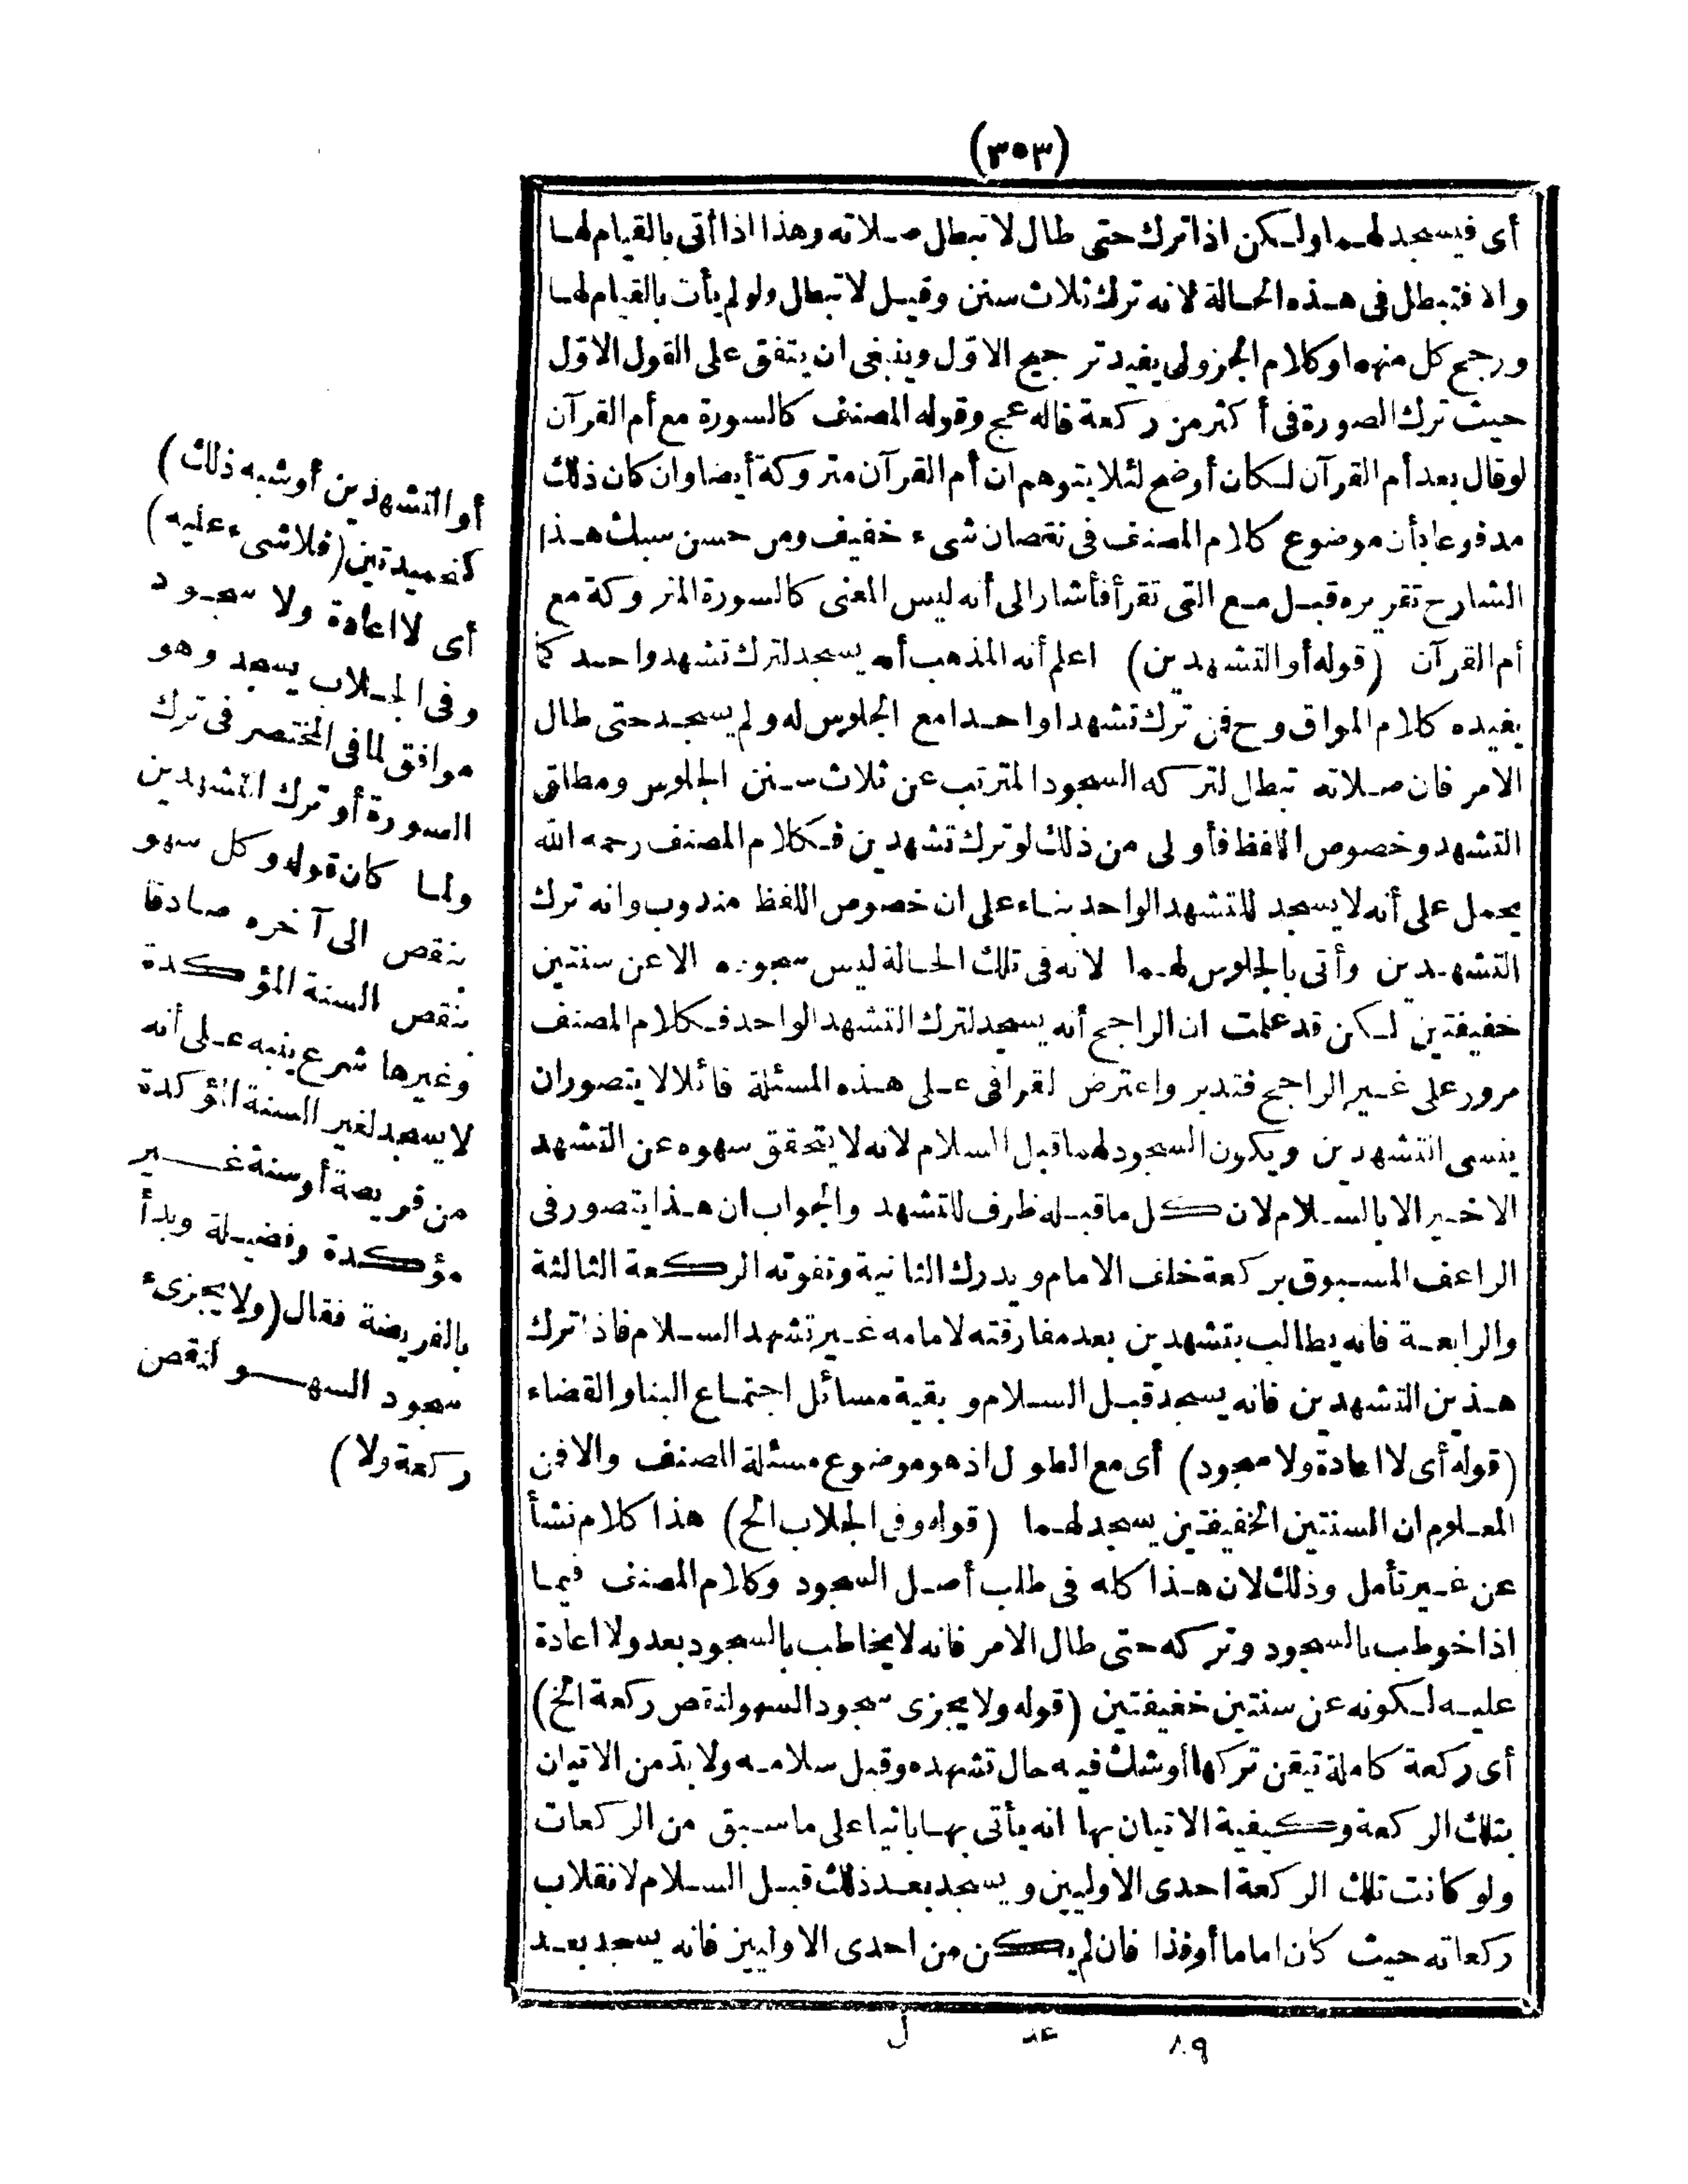 (٣٠٣)
أى فيسجد لهما ولكن اذا ترك حتى طال لا تبطل صلاته وهذا اذا أتى بالقيام لها
والا فتبطل فى هذه الحالة لانه ترك ثلاث سنن وقيل لا تبطل ولو لم يأت بالقيام لها
ورجح كل منهما وكلام الجزولى يفيد ترجيح الاوّل وينبغى ان يتفق على القول الاوّل
حيث ترك الصورة فى أكثر من ركعة قاله عج وقوله المصنف كالسورة مع أم القرآن
لو قال بعد أم القرآن لكان أوضح لئلا يتوهم ان أم القرآن متروكة أيضا وان كان ذلك
مدفوعا بأن موضوع كلام المصنف فى نقصان شىء خفيف ومن حسن سبك هذا
الشارح تقريره قبل مع التى تقرأ فأشار الى أنه ليس المعنى كالسورة المتروكة مع
أم القرآن (قوله أو التشهدين) اعلم أنه المذهب أنه يسجد لترك تشهد واحد كما
يفيده كلام المواق وح فن ترك تشهدا واحدا مع الجلوس له ولم يسجد حتى طال
الامر فان صلاته تبطل لتركه السجود المترتب عن ثلاث سنن الجلوس ومطلق
التشهد وخصوص اللفظ فأولى من ذلك لو ترك تشهدين فكلام المصنف رحمه الله
يحمل على أنه لا يسجد للتشهد الواحد بناء على ان خصوص اللفظ مندوب وانه ترك
التشهدين وأتى بالجلوس لهما لانه فى تلك الحالة ليس سجوده الا عن سنتين
خفيفتين لكن قد علمت ان الراجح أنه يسجد لترك التشهد الواحد فكلام المصنف
مرور على غير الراجح فتدبر واعترض لقرافى على هذه المسئلة قائلا لا يتصور ان
ينسى التشهدين ويكون السجود لهما قبل السلام لانه لا يتحقق سهوه عن التشهد
الاخير الا بالسلام لان كل ما قبله ظرف للتشهد والجواب ان هذا يتصور فى
الراعف المسبوق بركعة خلف الامام ويدرك الثانية وتفوته الركعة الثالثة
والرابعة فانه يطالب بتشهدين بعد مفارقته لامامه غير تشهد السلام فاذا ترك
هذين التشهدين فانه يسجد قبل السلام وبقية مسائل اجتماع البنا والقضاء
(قوله أى لا اعادة ولا سجود) أى مع الطول اذ هو موضوع مسئلة المصنف والا فن
المعلوم ان السنتين الخفيفتين يسجد لهما (قوله وفى الجلاب الخ) هذا كلام نشأ
عن غير تأمل وذلك لان هذا كله فى طلب أصل السجود وكلام المصنف فيما
اذا خوطب بالسجود وتركه حتى طال الامر فانه لا يخاطب بالسجود بعد ولا اعادة
عليه لكونه عن سنتين خفيفتين (قوله ولا يجزى سجود السهو لنقص ركعة الخ)
أى ركعة كاملة تيقن تركها أو شك فيه حال تشهده وقبل سلامه ولا بدّ من الاتيان
بتلك الركعة وكيفية الاتيان بها انه يأتى بها بانيا على ما سبق من الركعات
ولو كانت تلك الركعة احدى الاوليين ويسجد بعد ذلك قبل السلام لانقلاب
ركعاته حيث كان اماما أو فذا فان لم يكن من احدى الاوليين فانه يسجد بعد
أو التشهدين أو شبه ذلك)
كتحميدتين (فلا شىء عليه)
أى لا اعادة ولا سجود
وفى الجلاب يسجد وهو
موافق لما فى المختصر فى ترك
السورة أو ترك التشهدين
ولما كان قوله وكل سهو
بنقص الى آخره صادقا
بنقص السنة المؤكدة
وغيرها شرع ينبه على أنه
لا يسجد لغير السنة المؤكدة
من فريضة أو سنة غير
مؤكدة وفضيلة وبدأ
بالفريضة فقال (ولا يجزىء
سجود السهو لنقص
ركعة ولا)
٨٩ عد ل